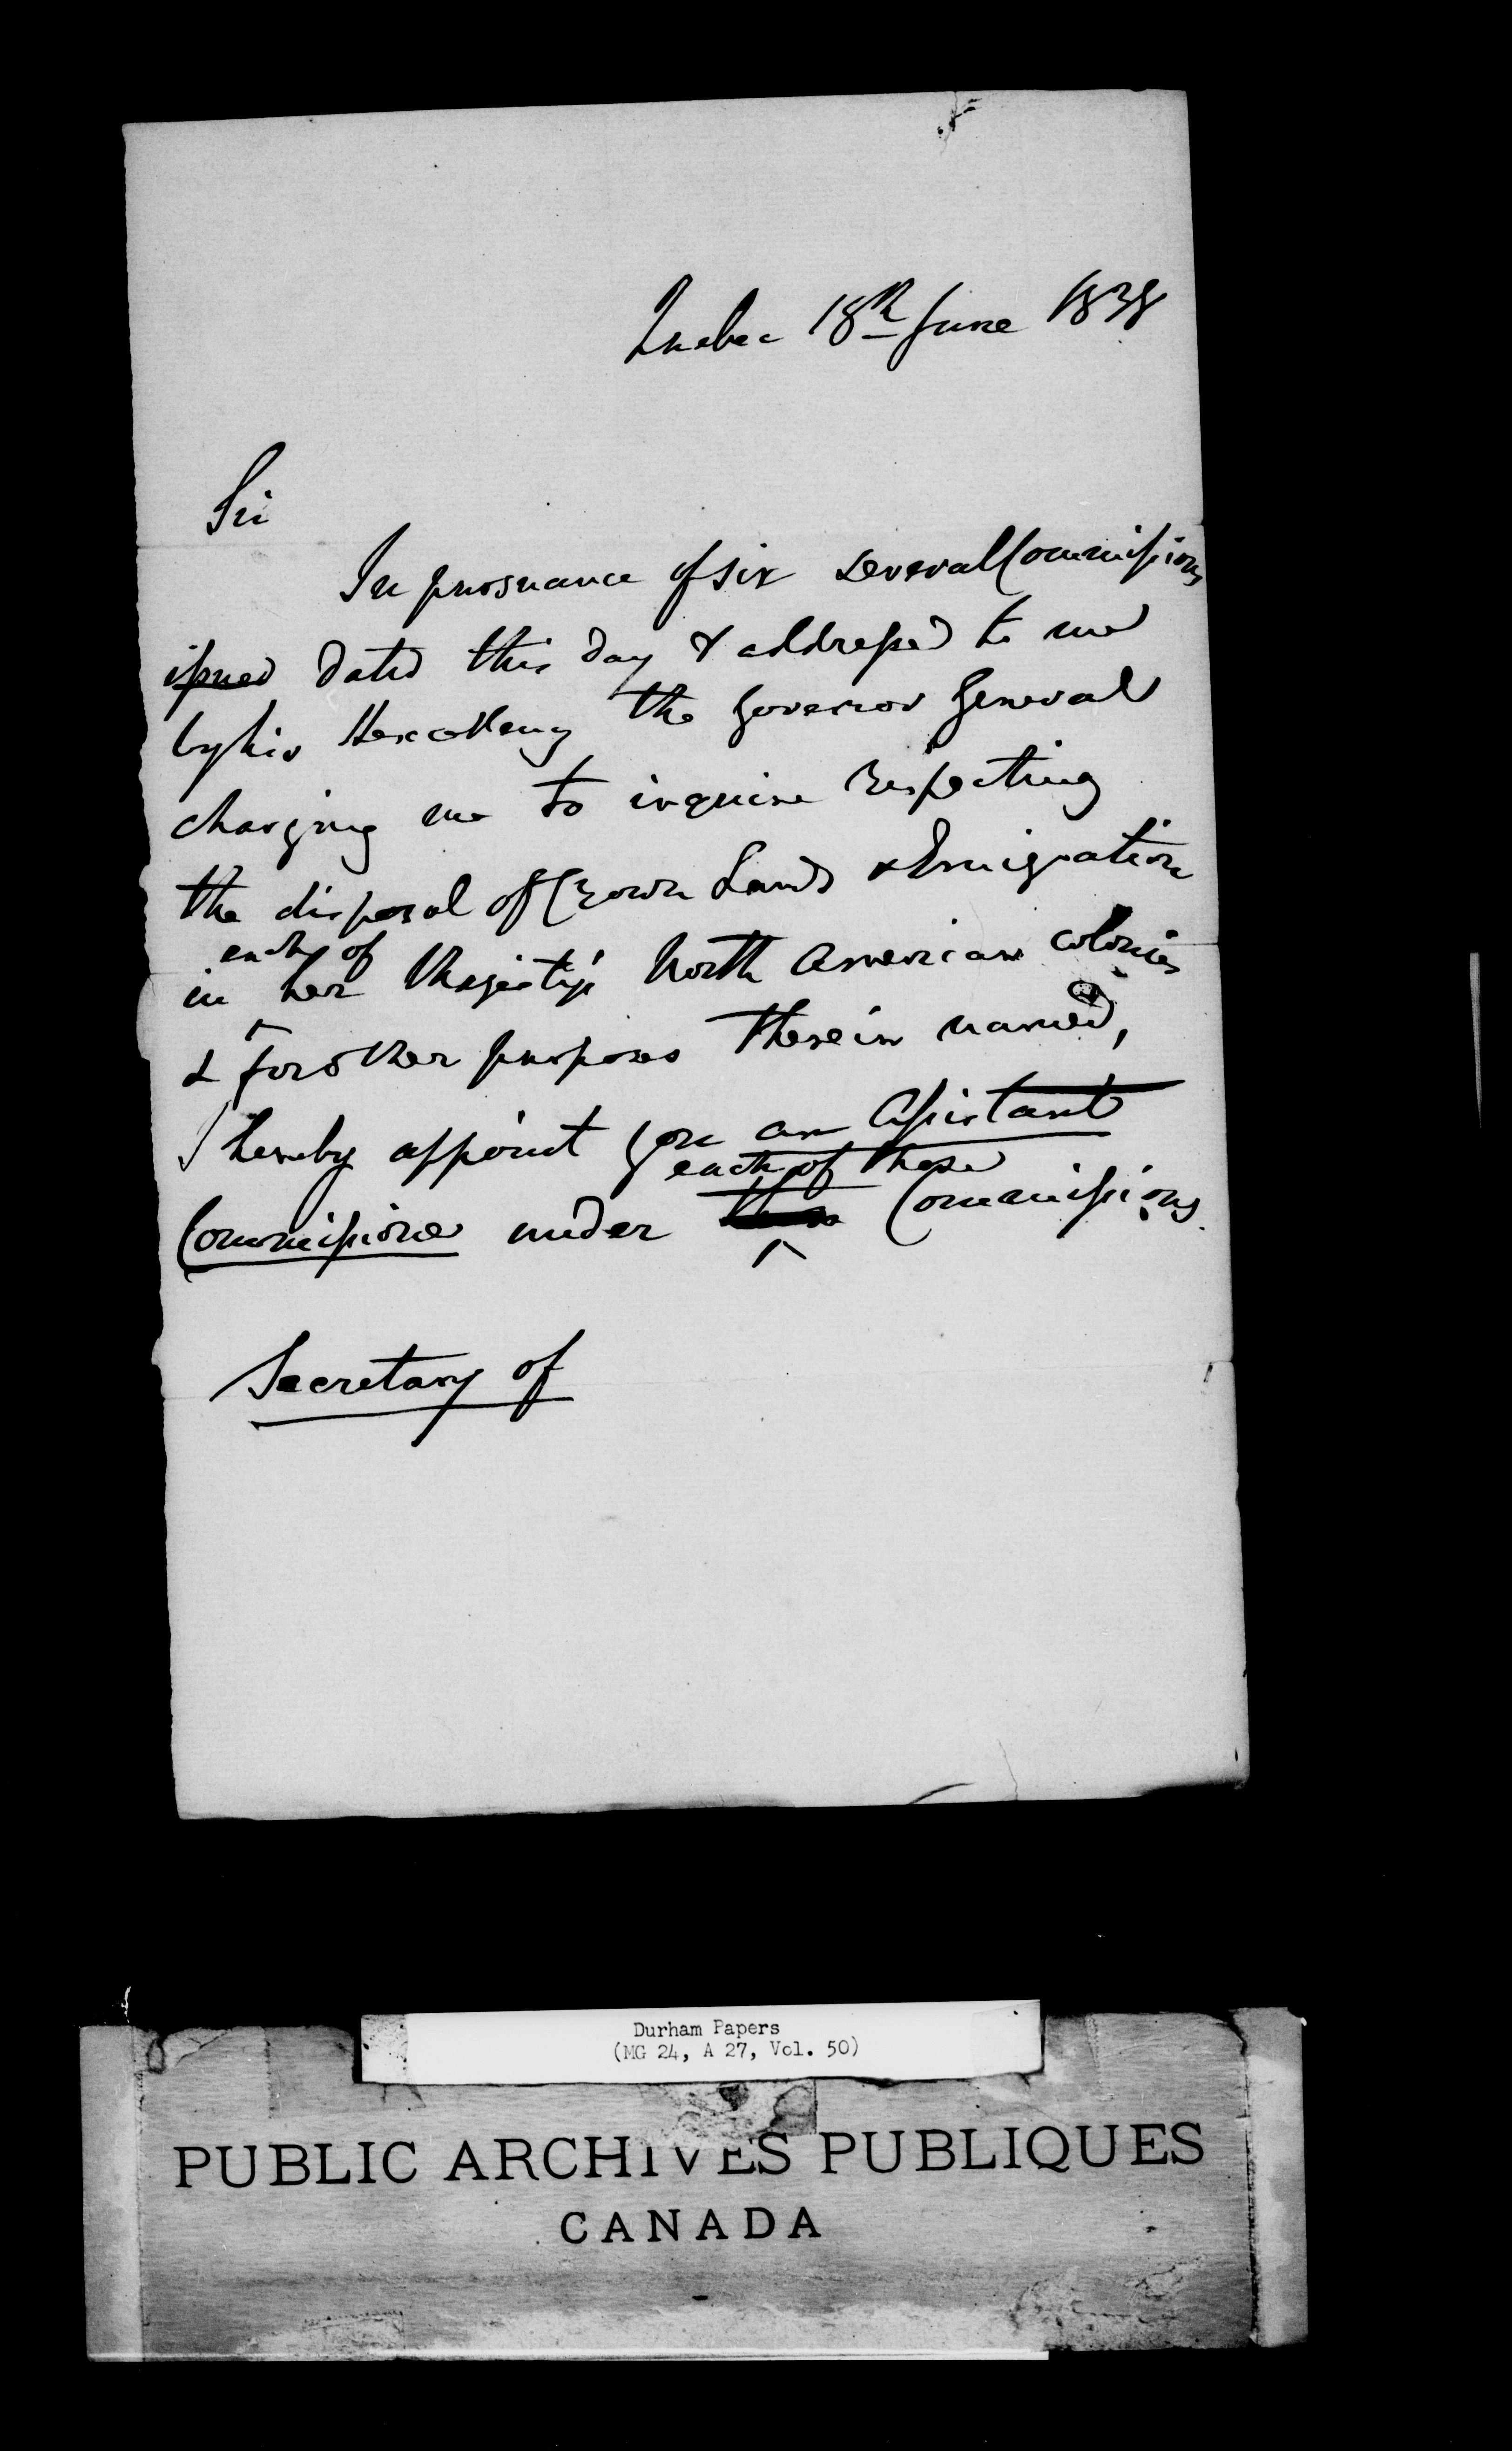 Quebec 18th June 1838
Sir
In pursuance of six several Commissions
issued dated this day & addressed to me
by his Excellency the Governor General
charging me to inquire respecting
the disposal of Crown Lands & Emigration
each of
in her Majesty's North American colonies
& for other purposes therein named,
I hereby appoint you an Assistant
each of these
Commissioner under Commissions.
Secretary of
Durham Papers
(MG 24, A 27, Vol. 50)
PUBLIC ARCHIVES PUBLIQUES
CANADA